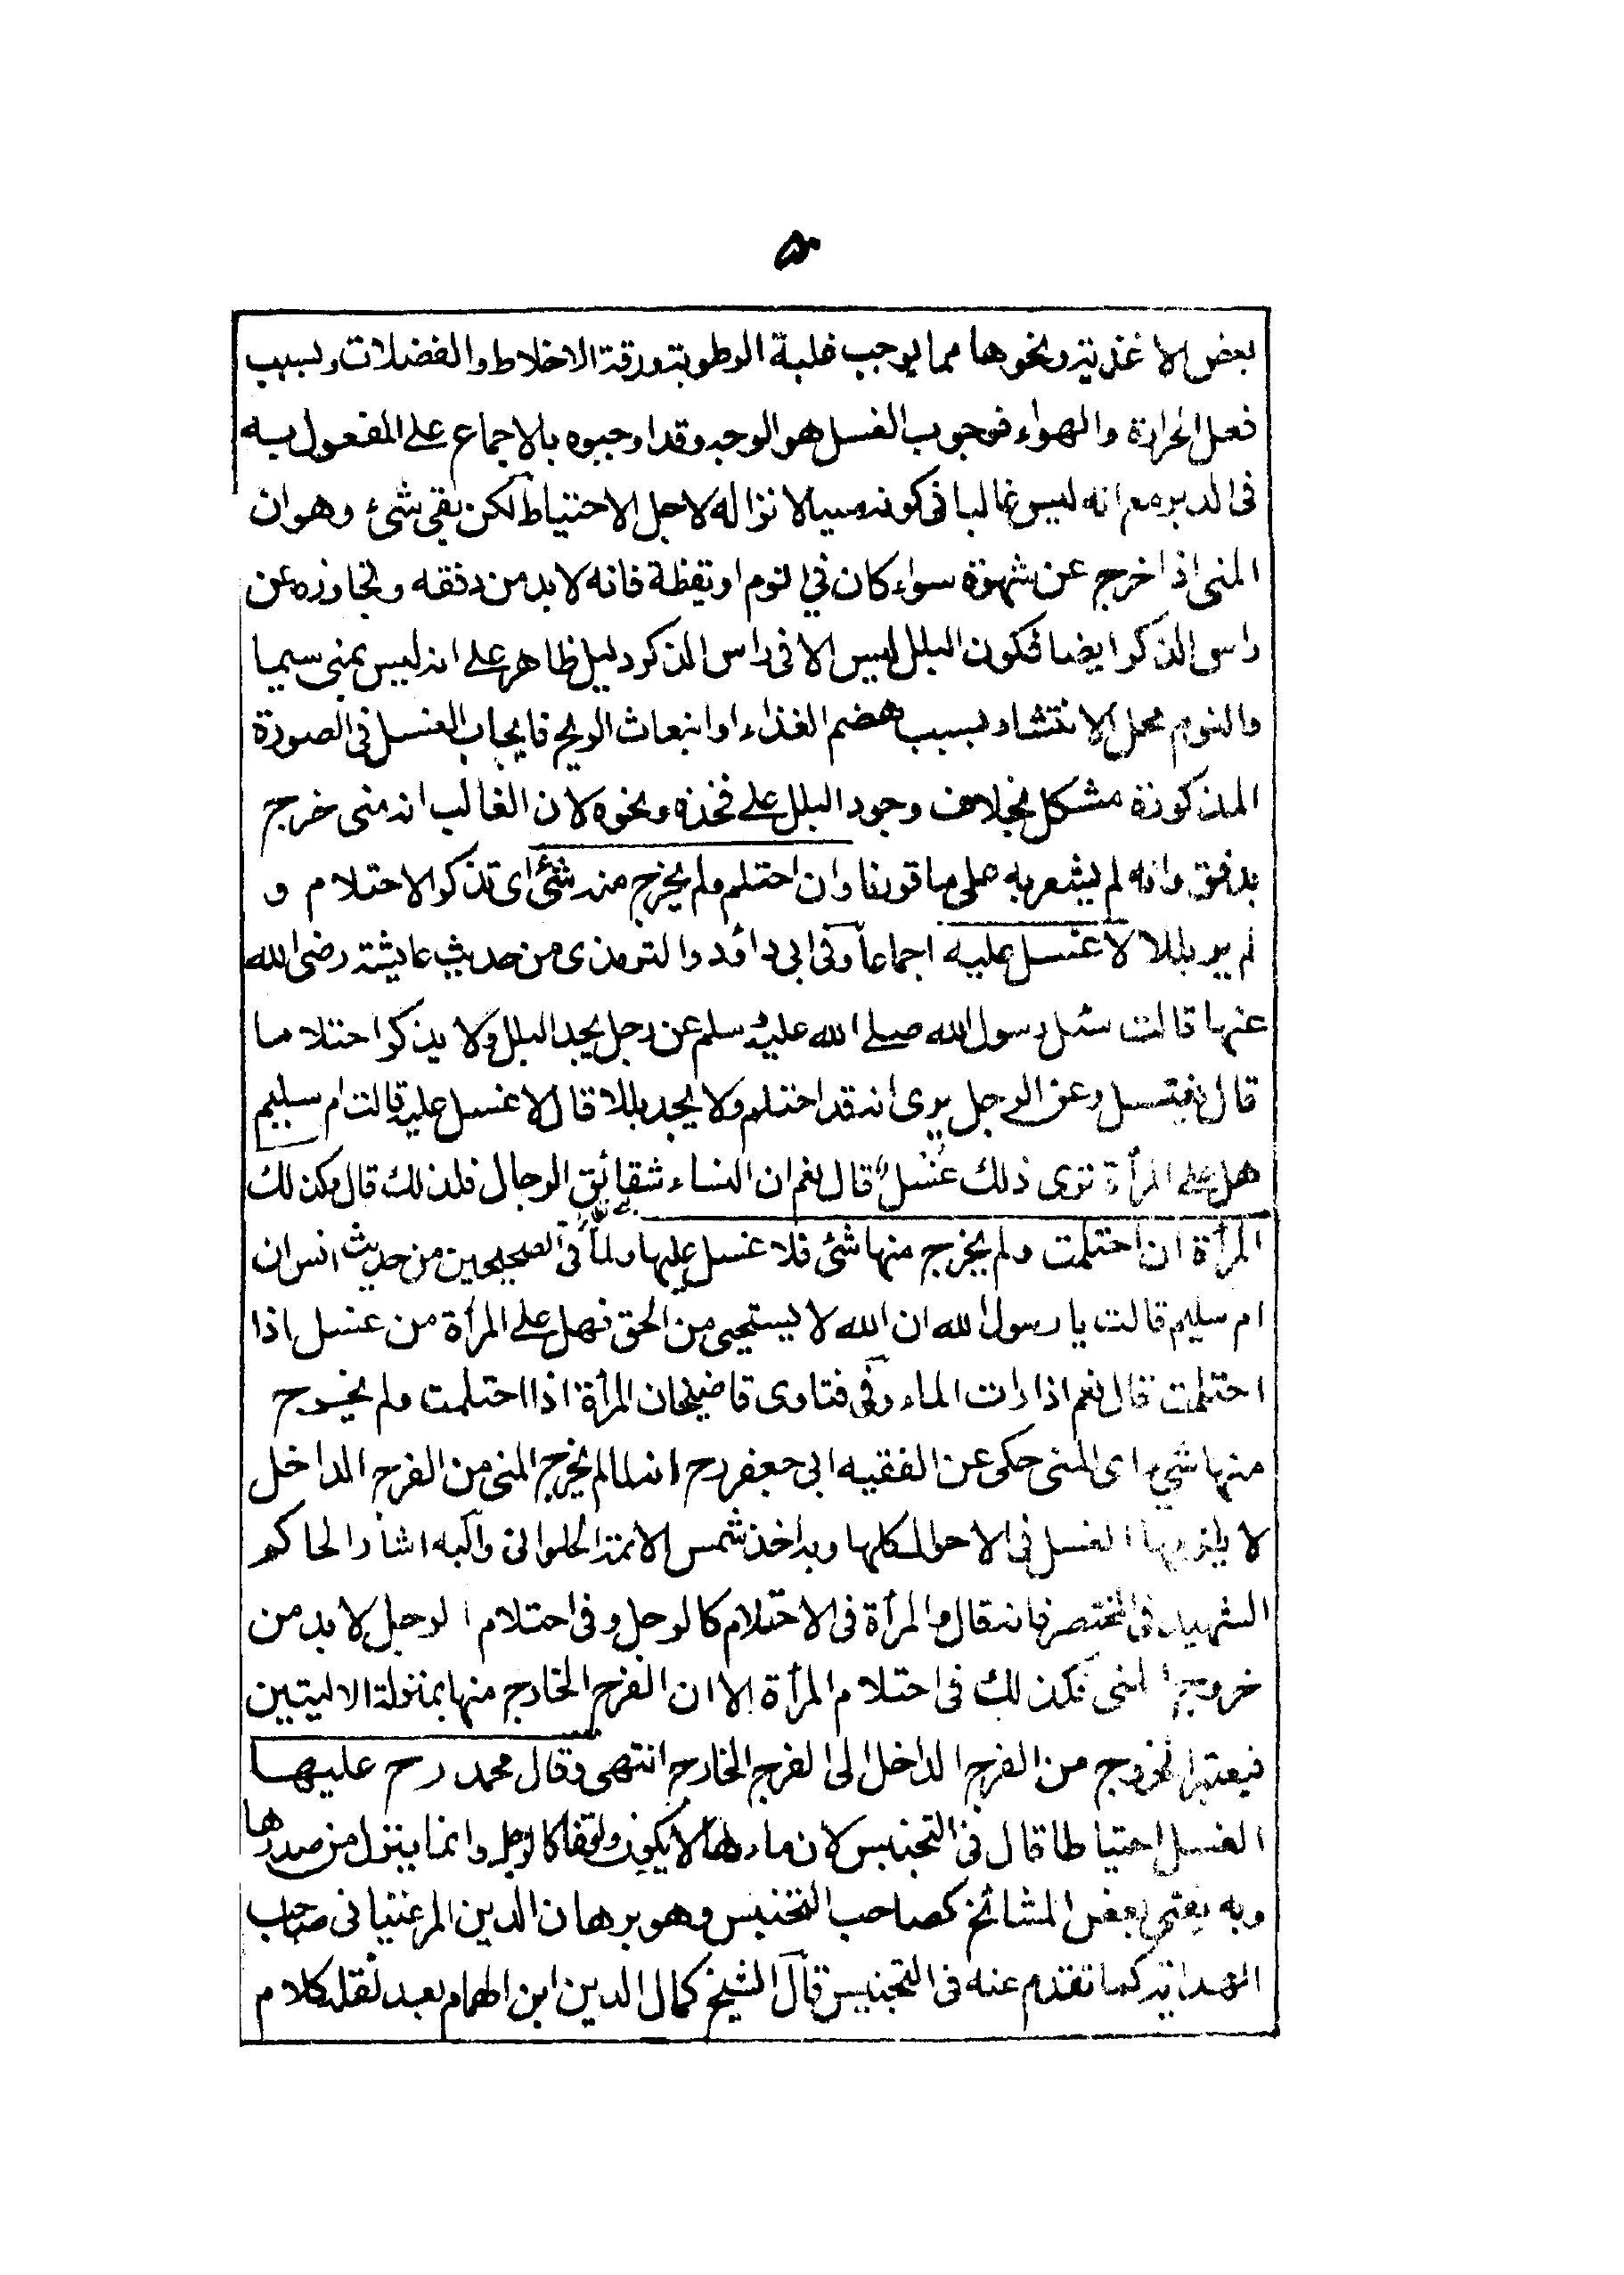 ۵۰
بعض الاغذية ونحوها مما يوجب غلبة الرطوبة ورقة الاخلاط والفضلات وبسبب
فعل الحرارة والهواء فوجوب الغسل هو الوجه وقد اوجبوه بالاجماع على المفعول به
فى الدبر مع انه ليس غالبا فى كونه سببا لانزاله لاجل الاحتياط لكن بقى شئ وهو ان
المنى اذا خرج عن شهوة سواء كان في النوم او يقظة فانه لا بد من دفقه وتجاوزه عن
راس الذكر ايضا فكون البلل ليس الا فى راس الذكر دليل ظاهر على انه ليس بمنى سيما
والنوم محل الانتشار بسبب هضم الغذاء او انبعاث الريح فايجاب الغسل فى الصورة
المذكورة مشكل بخلاف وجود البلل على فخذه ونحوه لان الغالب انه منى خرج
بدفق وانه لم يشعر به على ما قررنا وان احتلم ولم يخرج منه شئ اى تذكر الاحتلام و
لم ير بللا لا غسل عليه اجماعا وفى ابى داؤد والترمذى من حديث عايشة رضى الله
عنها قالت سئل رسول الله صلے الله عليه وسلم عن رجل يجد البلل ولا يذكر احتلاما
قال يغتسل وعن الرجل يرى انه قد احتلم ولا يجد بللا قال لا غسل عليه قالت ام سليم
هل على المرأة ترى ذلك غسل قال نعم ان النساء شقائق الرجال فلذلك قال وكذلك
المرأة ان احتلمت ولم يخرج منها شئ فلا غسل عليها ولما فى الصحيحين من حديث انس ان
ام سليم قالت يا رسول الله ان الله لا يستحيى من الحق فهل على المرأة من غسل اذا
احتلمت قال نعم اذا رات الماء وفى فتاوى قاضيخان المرأة اذا احتلمت ولم يخرج
منها شئ اى المنى حكى عن الفقيه ابى جعفر رح انه ما لم يخرج المنى من الفرج الداخل
لا يلزمها الغسل فى الاحوال كلها وبه اخذ شمس الائمة الحلوانى واليه اشار الحاكم
الشهيد فى المختصر فانه قال والمرأة فى الاحتلام كالرجل وفى احتلام الرجل لا بد من
خروج المنى فكذلك فى احتلام المرأة الا ان الفرج الخارج منها بمنزلة الاليتين
فيعتبر الخروج من الفرج الداخل الى الفرج الخارج انتهى وقال محمد رح عليها
الغسل احتياطا قال فى التجنيس لان ماءها لا يكون دافقا كالرجل وانما ينزل من صدرها
وبه يفتى بعض المشائخ كصاحب التجنيس وهو برهان الدين المرغينانى صاحب
الهداية كما تقدم عنه فى التجنيس قال الشيخ كمال الدين ابن الهمام بعد نقله كلام